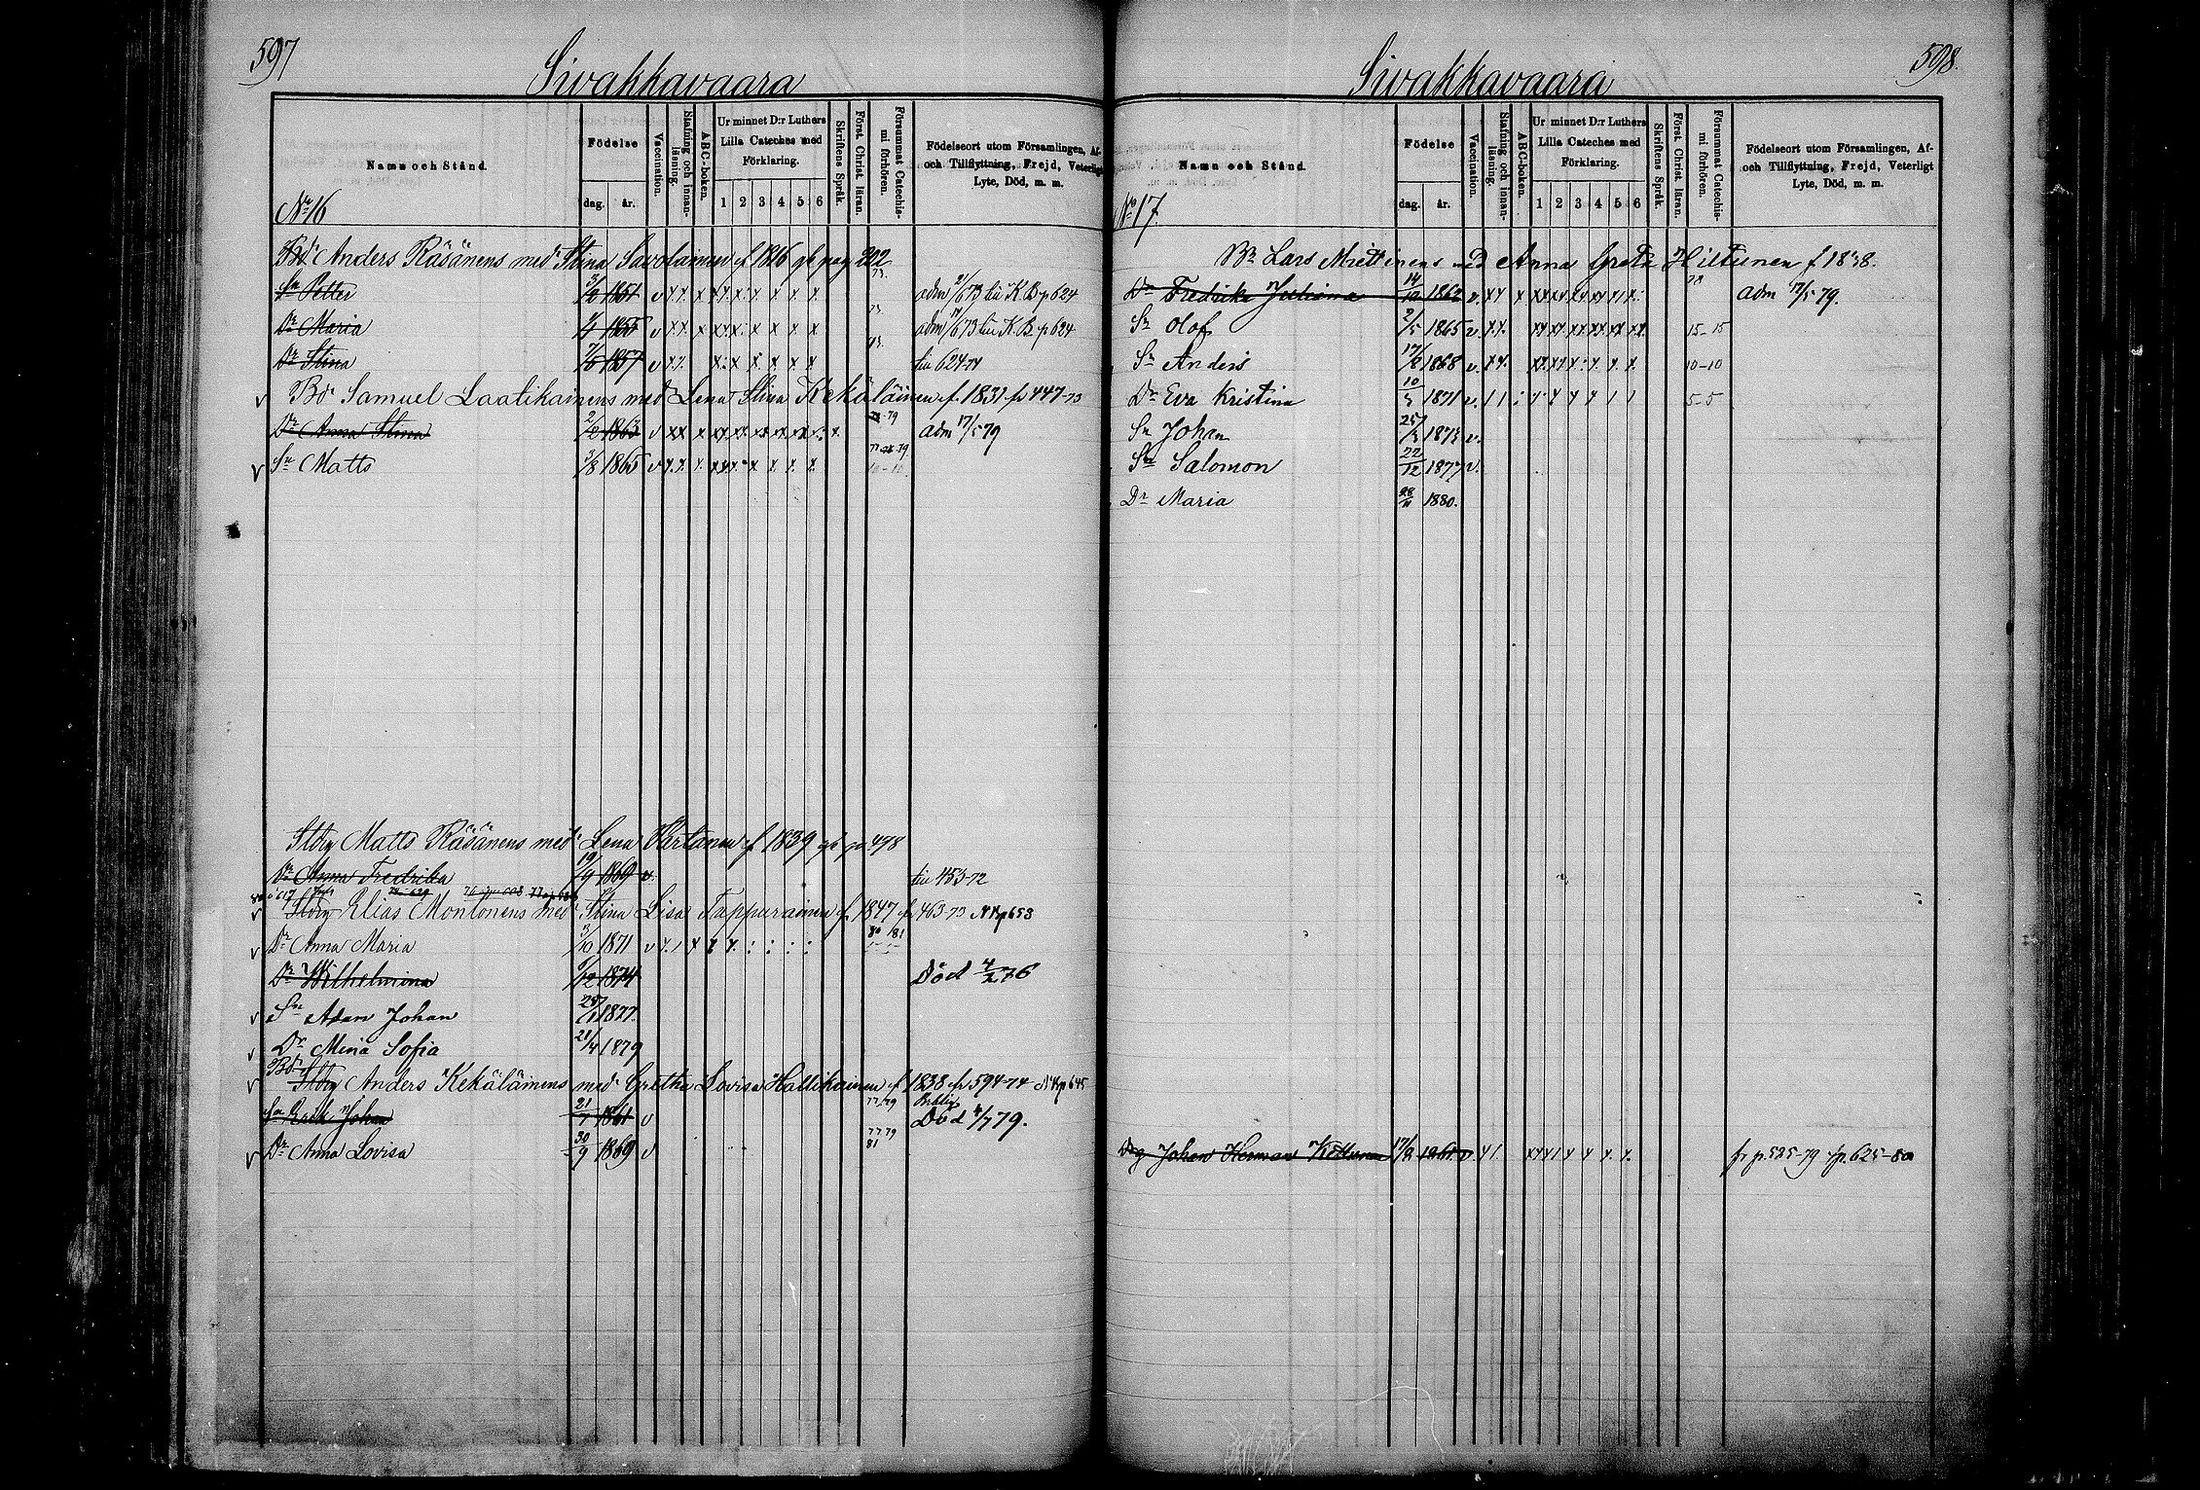 597
Sivakkavaara
Namn och Stånd.
Födelse
dag. år.
Vaccination.
Stafning och innanläsning.
ABC-boken.
Ur minnet D:r Luthers Lilla Cateches med Förklaring.
1 2 3 4 5 6
Skriftens Språk.
Först. Christ. läran.
Försummat Catechismi förhören.
Födelseort utom Församlingen, Af- och Tillflyttning, Frejd, Veterligt Lyte, Död, m. m.
No 16
Bd. Anders Räsänens med Stina Savolainen f 1816 gb pag 222
Sn Petter 1851 v adm 73 till K. B. p 624
Dr Maria 1855 v adm 73 till K. B. p 624
Dr Stina 1857 v till 624-74
v Bdr Samuel Laatikainens med Lena Stina Kekäläinen f. 1831 fr 447-73
Dr Anna Stina 2/2 1863 v adm 17/5 79
v Sn Matts 3/8 1865 v
Stbrg Matts Räsänens med Lena f 1839 gb p 498
Dr Anna Fredrika 19/9 1869 v till 453-72
v Stbrg Elias Montonens med Stina Lisa Tappurainen f. 1847 fr 463-73 NKp653
v Dr Anna Maria 3/10 1871 v 80 81
Dr Wilhelmina 12 1874 Död 76
v Sn Adam Johan 1877.
v Dr Mina Sofia 21/4 1879
v Bdr Stbrg Anders Kekäläinens med Gretha Lovisa Hallikainen f 1838 fr 594-74 NKp645
Sn Johan 21/7 1861 v 77.79 Död 4/7 79.
v Dr Anna Lovisa 30/9 1869 v 77 79 81
598.
Sivakkavaara
Namn och Stånd.
Födelse
dag. år.
Vaccination.
Stafning och innanläsning.
ABC-boken.
Ur minnet D:r Luthers Lilla Cateches med Förklaring.
1 2 3 4 5 6
Skriftens Språk.
Först. Christ. läran.
Försummat Catechismi förhören.
Födelseort utom Församlingen, Af- och Tillflyttning, Frejd, Veterligt Lyte, Död, m. m.
No 17.
Br Lars Miettinens med Anna Greta Hiltunen f 1838.
Dr Fredrika Juliana 14/12 1862 v. adm 17/5 79.
Sn Olof 2/5 1865 v. 15-15
Sn Anders 17/8 1868 v. 10-10
Dr Eva Kristina 10/3 1871 v. 5-5
Sn Johan 25/3 1873 v.
Sn Salomon 22/12 1877 v.
Dr Maria 28/11 1880.
Drg Johan Herman Kettunen 17/2 1861 v. fr p. 525-79 fp. 625-80